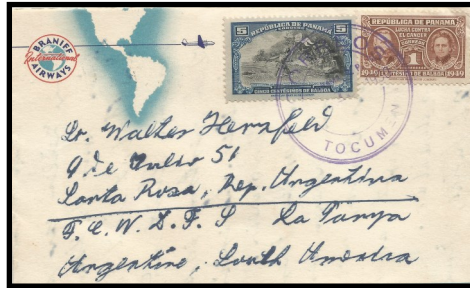 BRANIFF
International
AIRWAYS
REPÚBLICA DE PANAMÁ
5 5
CINCO CENTÉSIMOS DE BALBOA
REPÚBLICA DE PANAMÁ
LUCHA CONTRA
EL CANCER
1
1940 1 CENTÉSIMO DE BALBOA 1949
TOCUMEN
Sr. Walter Hernfeld
9 de Julio 51
Santa Rosa, Rep. Argentina
F.C.W.D.F.S La Pampa
Argentine, South America